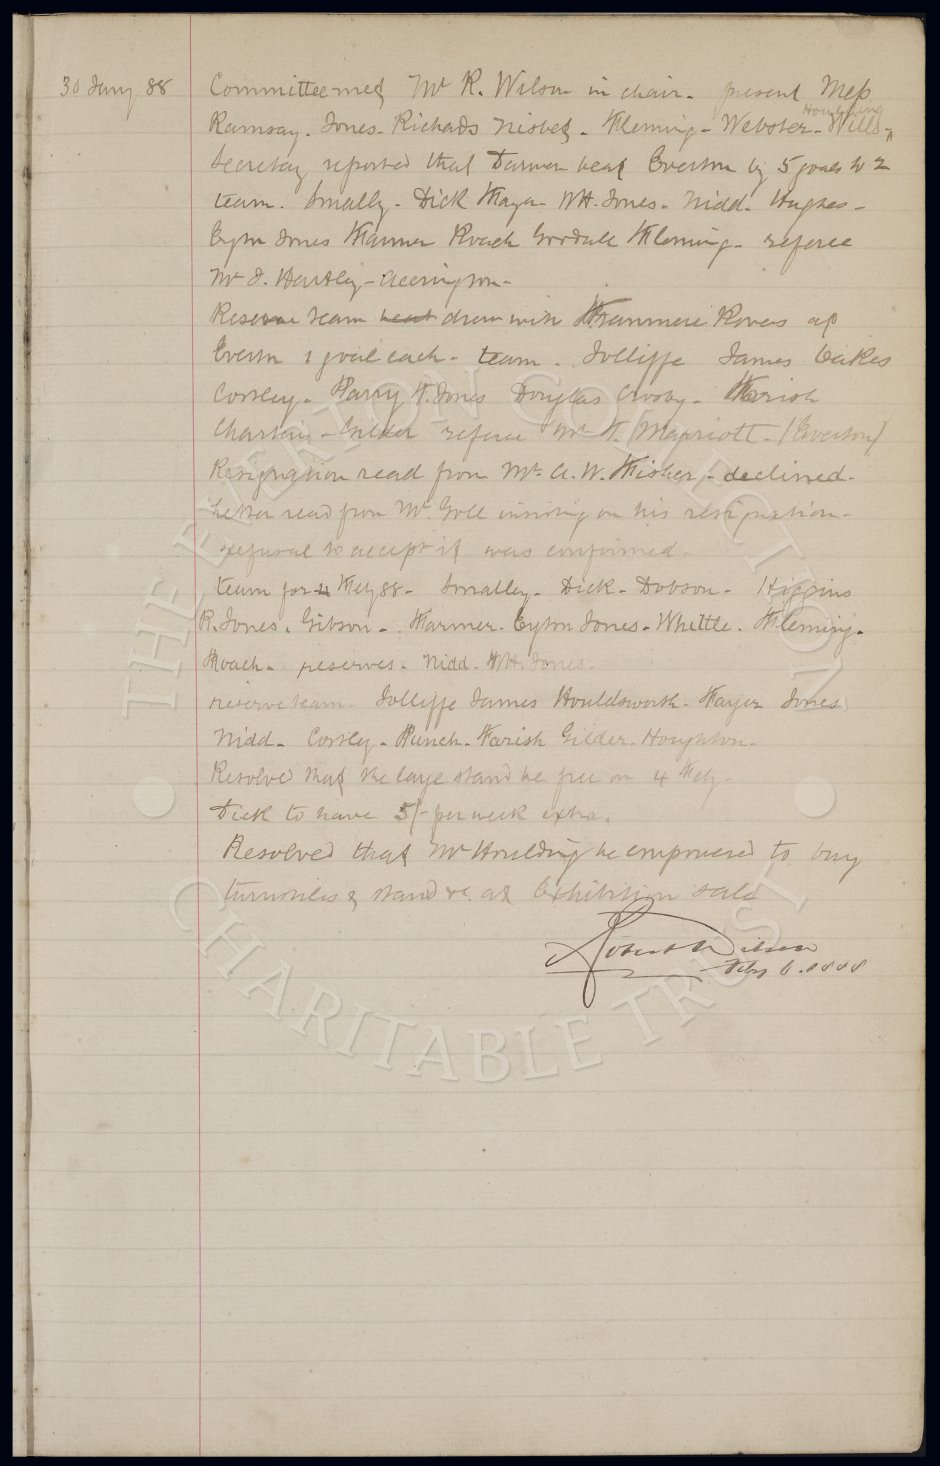 30 Jany 88 Committee met Mr R. Wilson in chair - present Mess
Houlding
Ramsay - Jones - Richards Nisbet - Fleming - Webster - Wills -
Secretary reported that Darwen beat Everton by 5 goals to 2
team. Smally - Dick Fayer - WH. Jones - Nidd - Hughes -
Eyton Jones Farmer Roach Goodall Fleming - referee
Mr J. Hartley - Accrington -
Reserve team beat drew with Tranmere Rovers at
Everton 1 goal each - team - Jolliffe James Oakes
Corsley - Parry T. Jones Douglas Crosby - Farish
Charters - Gilder referee Mr T. Marriott - (Everton)
Resignation read from Mr. A. W. Fisher - declined -
Letter read from Mr. Goll insisting on his resignation -
refusal to accept it was confirmed -
team for 4 Feby 88 - Smalley - Dick - Dobson - Higgins
R. Jones. Gibson - Farmer - Eyton Jones - Whittle - Fleming -
Roach - reserves - Nidd - WH. Jones -
reserve team - Jolliffe James Houldsworth - Fayer Jones
Nidd - Corsley - Punch - Farish Gilder - Houghton -
Resolved that the large stand be free on 4 Feby -
Dick to have 5/- per week extra.
Resolved that Mr Houlding be empowered to buy
turnstiles & stand &c. at Exhibition sale
Robert Wilson
Feby 6. 1888
THE EVERTON COLLECTION
CHARITABLE TRUST